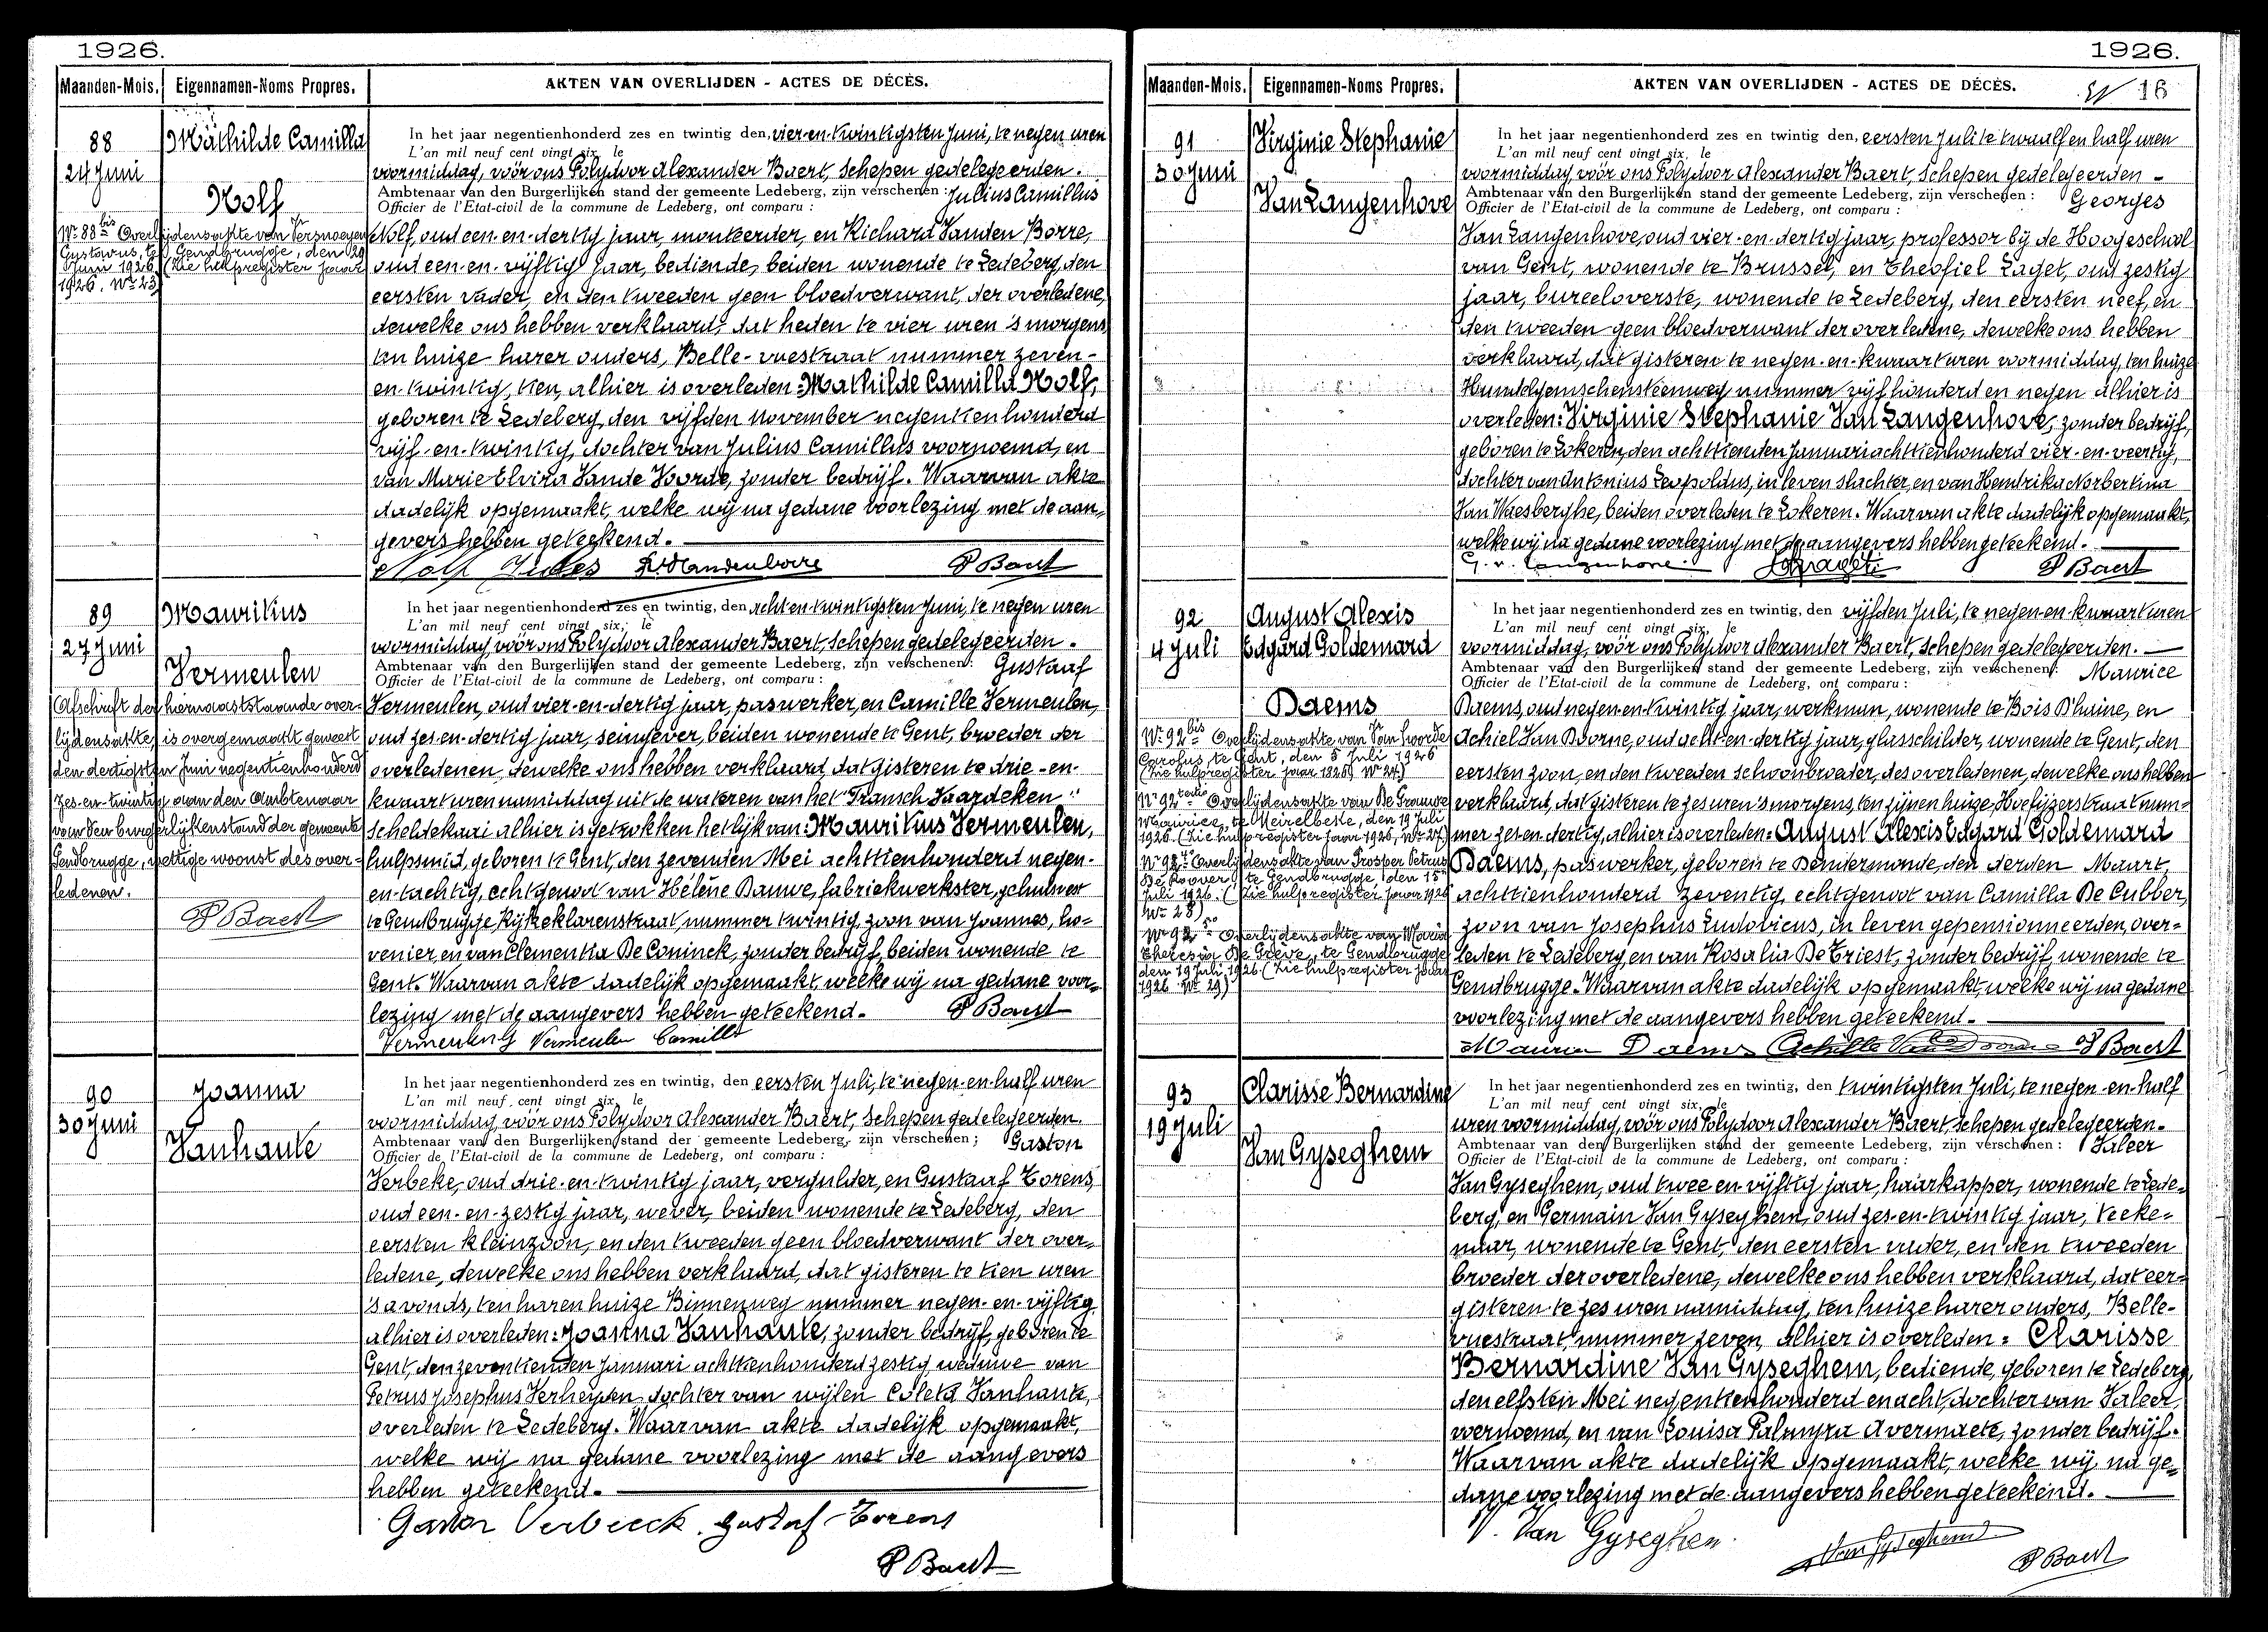 1926.
Maanden-Mois. Eigennamen-Noms Propres. AKTEN VAN OVERLIJDEN - ACTES DE DÉCÈS.
88
24 Juni
Mathilde Camilla
Nolf
Nr 88 bis Overlijdensakte van Versnoeyen
Gustavus, te Gendbrugge, den 29
Juni 1926. (Zie hulpregister jaar
1926. Nr 23)
In het jaar negentienhonderd zes en twintig den, vier-en-twintigsten Juni, te negen uren
L'an mil neuf cent vingt six, le
voormiddag, vóór ons Polydoor Alexander Baert, Schepen gedelegeerden.
Ambtenaar van den Burgerlijken stand der gemeente Ledeberg, zijn verschenen : Julius Camillus
Officier de l'Etat-civil de la commune de Ledeberg, ont comparu :
Nolf, oud een-en-dertig jaar, monteerder, en Richard Vanden Borre,
oud een-en-vijftig jaar, bediende, beiden wonende te Ledeberg, den
eersten vader, en den tweeden geen bloedverwant, der overledene,
dewelke ons hebben verklaard, dat heden te vier uren 's morgens
ten huize harer ouders, Belle-vuestraat nummer zeven-
en-twintig, tien, alhier is overleden: Mathilde Camilla Nolf,
geboren te Ledeberg, den vijfden November negentienhonderd
vijf-en-twintig, dochter van Julius Camillus voornoemd, en
van Marie Elvira Vande Voorde, zonder bedrijf. Waarvan akte
dadelijk opgemaakt, welke wij na gedane voorlezing met de aan-
gevers hebben geteekend.
Nolf Jules R. Vandenborre P Baert
89
27 Juni
Mauritius
Vermeulen
Afschrift der hiernaaststaande over-
lijdensakte, is overgemaakt geweest
den dertigsten Juni negentienhonderd
zes-en-twintig aan den Ambtenaar
van den burgerlijkenstand der gemeente
Gendbrugge, wettige woonst des over-
ledenen.
P Baert
In het jaar negentienhonderd zes en twintig, den acht-en-twintigsten Juni, te negen uren
L'an mil neuf cent vingt six, le
voormiddag, vóór ons Polydoor Alexander Baert, Schepen gedelegeerden.
Ambtenaar van den Burgerlijken stand der gemeente Ledeberg, zijn verschenen : Gustaaf
Officier de l'Etat-civil de la commune de Ledeberg, ont comparu :
Vermeulen, oud vier-en-dertig jaar, paswerker, en Camille Vermeulen,
oud zes-en-dertig jaar, seingever, beiden wonende te Gent, broeder der
overledenen, dewelke ons hebben verklaard, dat gisteren te drie-en-
kwaart uren namiddag uit de wateren van het "Fransch Vaardeken"
Scheldekaai alhier is getrokken het lijk van: Mauritius Vermeulen,
hulpsmid, geboren te Gent, den zevenden Mei achttienhonderd negen-
en-tachtig, echtgenoot van Hélène Dauwe, fabriekwerkster, gehuisvest
te Gendbrugge, Rijkeklarenstraat, nummer twintig, zoon van Joannes, ho-
venier, en van Clementia De Coninck, zonder bedrijf, beiden wonende te
Gent. Waarvan akte dadelijk opgemaakt, welke wij na gedane voor-
lezing met de aangevers hebben geteekend. P Baert
Vermeulen G Vermeulen Camille
90
30 Juni
Joanna
Vanhaute
In het jaar negentienhonderd zes en twintig, den eersten Juli, te negen-en-half uren
L'an mil neuf cent vingt six, le
voormiddag, vóór ons Polydoor Alexander Baert, Schepen gedelegeerden.
Ambtenaar van den Burgerlijken stand der gemeente Ledeberg, zijn verschenen ; Gaston
Officier de l'Etat-civil de la commune de Ledeberg, ont comparu :
Verbeke, oud drie-en-twintig jaar, vergulder, en Gustaaf Torens,
oud een-en-zestig jaar, wever, beiden wonende te Ledeberg, den
eersten kleinzoon, en den tweeden geen bloedverwant der over-
ledene, dewelke ons hebben verklaard, dat gisteren te tien uren
's avonds, ten haren huize Binnenweg nummer negen-en-vijftig
alhier is overleden: Joanna Vanhaute, zonder bedrijf, geboren te
Gent, den zeventienden Januari achttienhonderd zestig, weduwe van
Petrus Josephus Verheyden, dochter van wijlen Coleta Vanhaute,
overleden te Ledeberg. Waarvan akte dadelijk opgemaakt,
welke wij na gedane voorlezing met de aangevers
hebben geteekend.
Gaston Verbeeck. Gustaf Torens
P Baert
1926.
Maanden-Mois. Eigennamen-Noms Propres. AKTEN VAN OVERLIJDEN - ACTES DE DÉCÈS. 16
91
30 Juni
Virginie Stephanie
Van Langenhove
In het jaar negentienhonderd zes en twintig den, eersten Juli te twaalf en half uren
L'an mil neuf cent vingt six, le
voormiddag vóór ons Polydoor Alexander Baert, Schepen gedelegeerden -
Ambtenaar van den Burgerlijken stand der gemeente Ledeberg, zijn verschenen : Georges
Officier de l'Etat-civil de la commune de Ledeberg, ont comparu :
Van Langenhove, oud vier-en-dertig jaar, professor bij de Hoogeschool
van Gent, wonende te Brussel, en Theofiel Laget, oud zestig
jaar, bureeloverste, wonende te Ledeberg, den eersten neef, en
den tweeden geen bloedverwant der overledene, dewelke ons hebben
verklaard, dat gisteren te negen-en-kwaart uren voormiddag, ten huize
Hundelgemschensteenweg nummer vijfhonderd en negen alhier is
overleden: Virginie Stephanie Van Langenhove, zonder bedrijf,
geboren te Lokeren, den achttienden Januari achttienhonderd vier-en-veertig,
dochter van Antonius Leopoldus, in leven slachter, en van Hendrika Norbertina
Van Waesberghe, beiden overleden te Lokeren. Waarvan akte dadelijk opgemaakt,
welke wij na gedane voorlezing met de aangevers hebben geteekend.
G. v. Langenhove. P Baert
92
4 Juli
August Alexis
Edgard Goldemard
Daems
Nr 92 bis Overlijdensakte van Van hoorde
Carolus, te Gent, den 5 Juli 1926
(Zie hulpregister jaar 1926 Nr 24)
Nr 92 Overlijdensakte van De Grauwe
Maurice, te Meirelbeke, den 19 Juli
1926. (Zie hulpregister jaar 1926, Nr 27)
Nr 92 Overlijdensakte van Prosper Petrus
De Koover, te Gendbrugge, den 15
Juli 1926. (Zie hulpregister jaar 1926
Nr 28)
Nr 92 Overlijdensakte van Maria
Theresia De Grève, te Gendbrugge
den 19 Juli 1926. (Zie hulpregister jaar
1926 Nr 29)
In het jaar negentienhonderd zes en twintig, den vijfden Juli, te negen-en-kwaart uren
L'an mil neuf cent vingt six, le
voormiddag, vóór ons Polydoor Alexander Baert, Schepen gedelegeerden.
Ambtenaar van den Burgerlijken stand der gemeente Ledeberg, zijn verschenen : Maurice
Officier de l'Etat-civil de la commune de Ledeberg, ont comparu :
Daems, oud negen-en-twintig jaar, werkman, wonende te Bois D'haine, en
Achiel Van Doorne, oud acht-en-dertig jaar, glasschilder, wonende te Gent, den
eersten zoon, en den tweeden schoonbroeder, des overledenen, dewelke ons hebben
verklaard, dat gisteren te zes uren 's morgens, ten zijnen huize, Hoefijzerstraat num-
mer zes-en-dertig, alhier is overleden: August Alexis Edgard Goldemard
Daems, paswerker, geboren te Dendermonde, den derden Maart,
achttienhonderd zeventig, echtgenoot van Camilla De Cubber,
zoon van Josephus Ludovicus, in leven gepensionneerden, over-
leden te Ledeberg, en van Rosalia De Triest, zonder bedrijf, wonende te
Gendbrugge. Waarvan akte dadelijk opgemaakt, welke wij na gedane
voorlezing met de aangevers hebben geteekend.
Maurice Daems Achille Van Doorne P Baert
93
19 Juli
Clarisse Bernardine
Van Gyseghem
In het jaar negentienhonderd zes en twintig, den twintigsten Juli, te negen-en-half
L'an mil neuf cent vingt six, le
uren voormiddag, vóór ons Polydoor Alexander Baert, Schepen gedelegeerden.
Ambtenaar van den Burgerlijken stand der gemeente Ledeberg, zijn verschenen : Valeer
Officier de l'Etat-civil de la commune de Ledeberg, ont comparu :
Van Gyseghem, oud twee en vijftig jaar, haarkapper, wonende te Lede-
berg, en Germain Van Gyseghem, oud zes-en-twintig jaar, teeke-
naar, wonende te Gent, den eersten vader, en den tweeden
broeder der overledene, dewelke ons hebben verklaard, dat eer-
gisteren te zes uren namiddag, ten huize harer ouders, Belle-
vuestraat nummer zeven, alhier is overleden: Clarisse
Bernardine Van Gyseghem, bediende, geboren te Ledeberg,
den elfsten Mei negentienhonderd en acht, dochter van Valeer,
voornoemd, en van Louisa Palmyra Avermaete, zonder bedrijf.
Waarvan akte dadelijk opgemaakt, welke wij na ge-
dane voorlezing met de aangevers hebben geteekend.
V. Van Gyseghem. Van Gyseghem P Baert